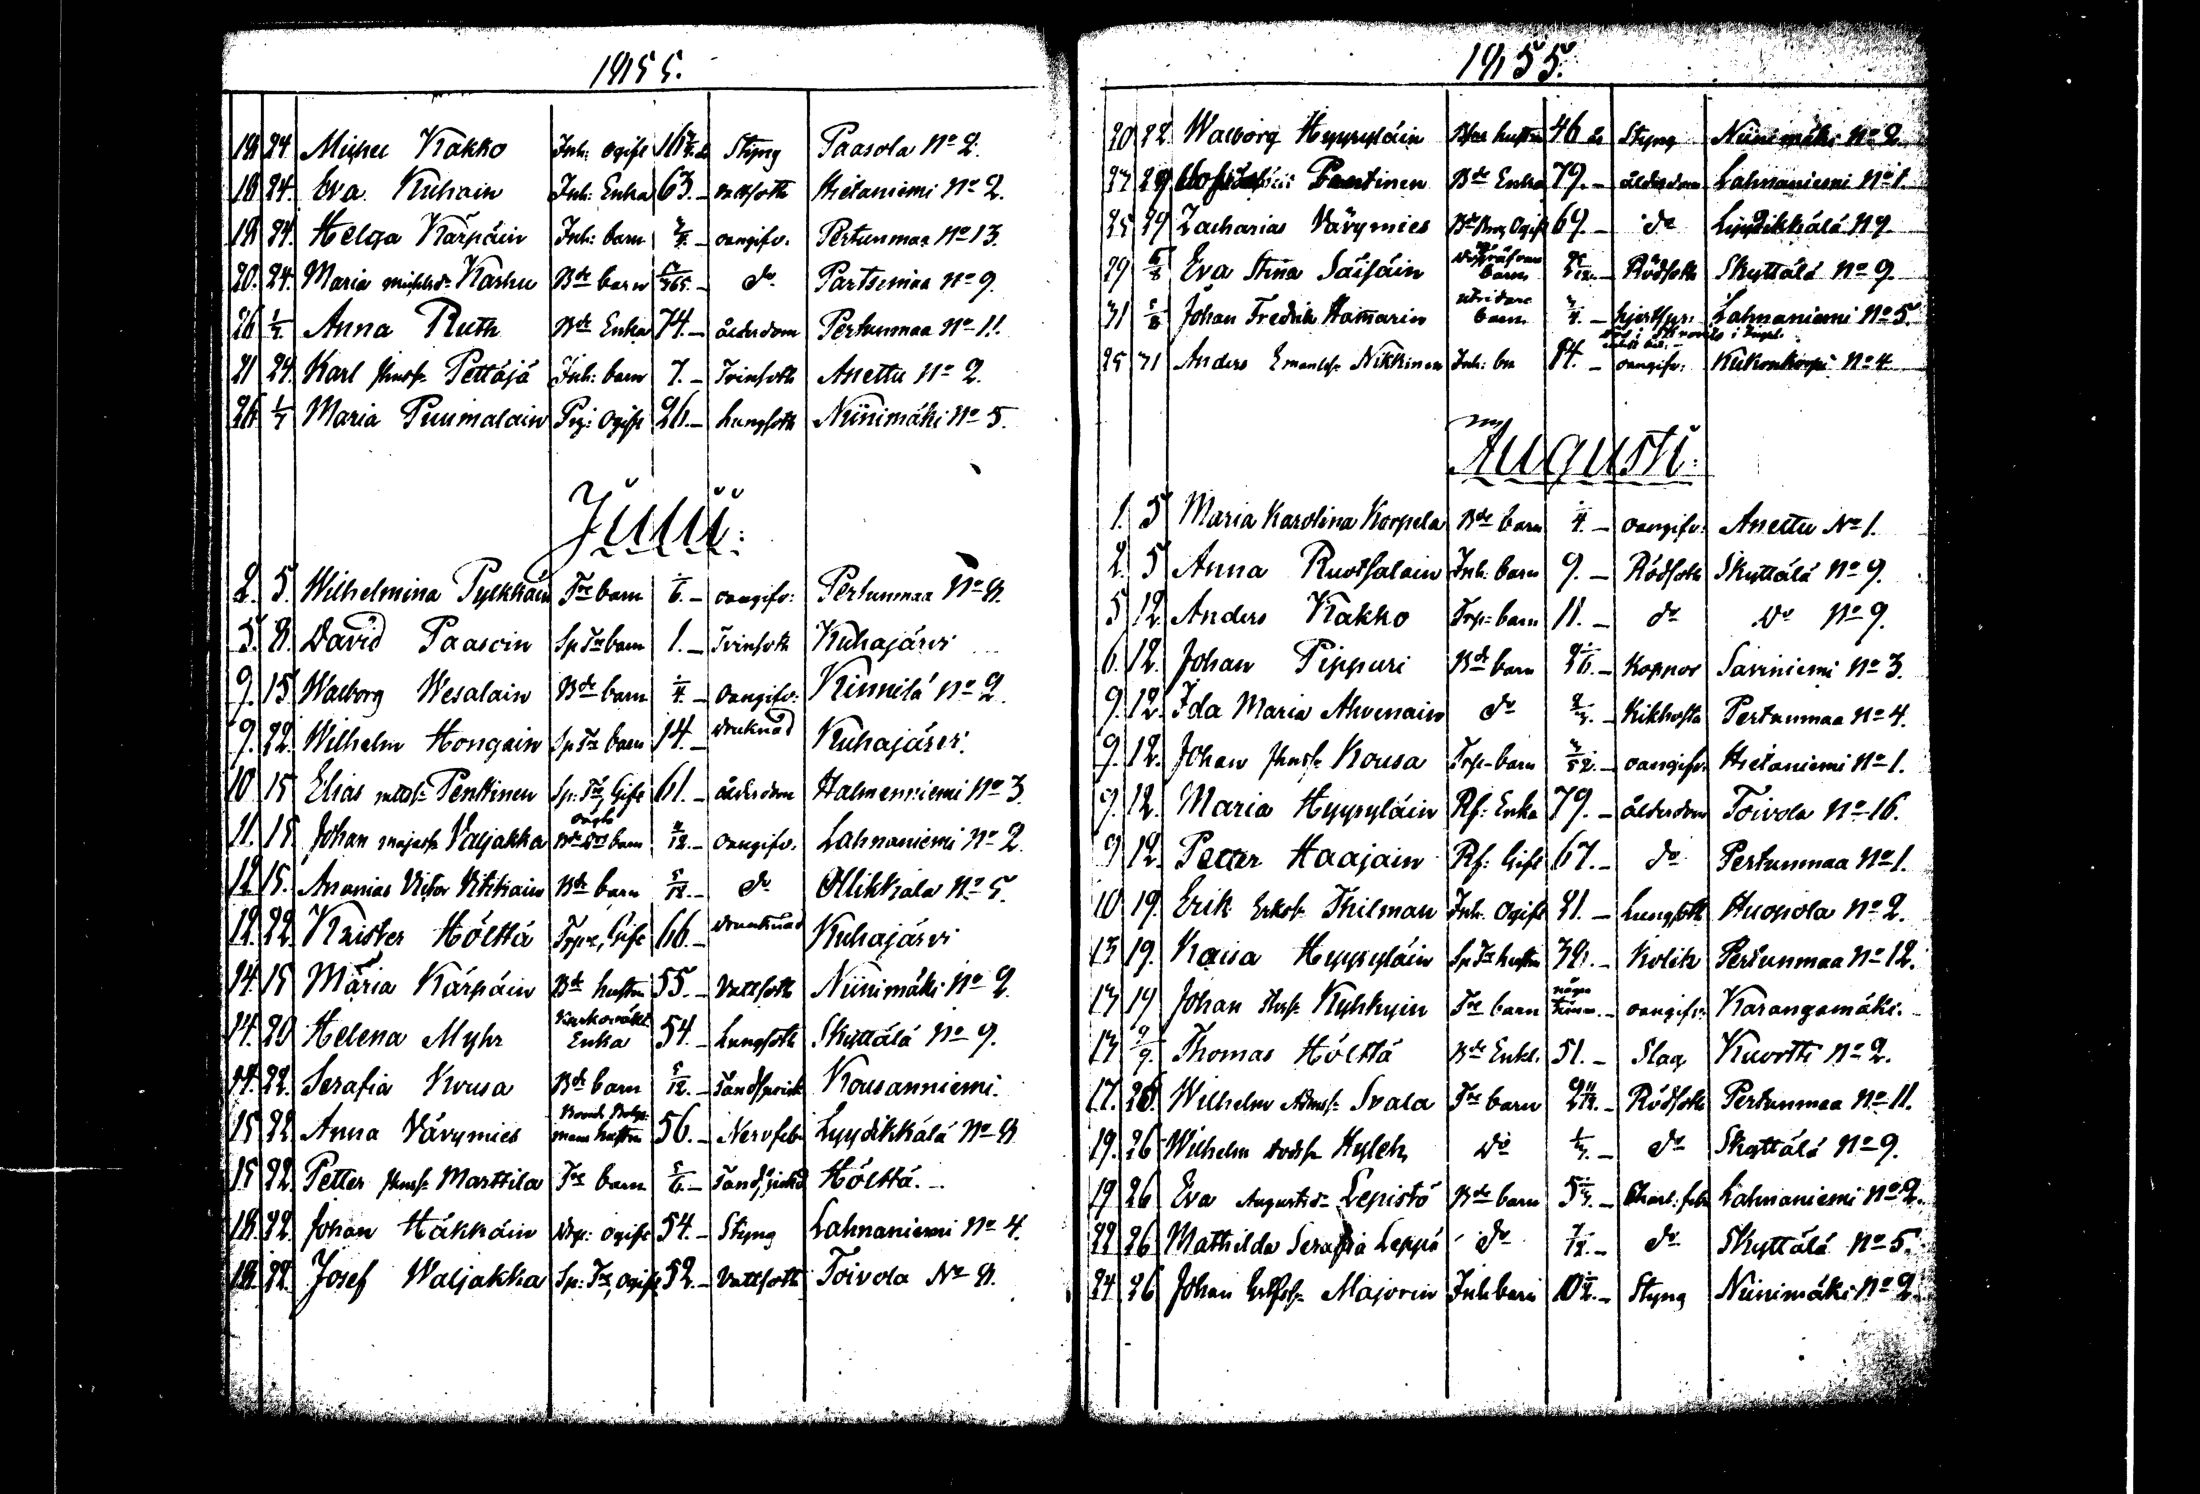 1855.
18 24 Michel Kakko Inh: ogift 16 år Styng Paasola No 2.
18 24. Eva Kuhain Inh: Enka 63.– vattsoth Hietaniemi No 2.
18 24. Helga Kärpäin Inh: barn – oangifv. Pertunmaa No 13.
20. 24. Maria Karhu Bde barn – do Partsimaa No 9.
26 1/7 Anna Ruth Bde Enka 74.– ålderdom Pertunmaa No 11.
21 24. Karl Pettäjä Inh: barn 7.– Tvinsoth Anettu No 2.
26 1/7 Maria Puumalain Pig: ogift 26.– Lungsoth Niinimäki No 5.
Julii:
2. 5. Wilhelmina Pylkkäin Tre barn – oangifv: Pertunmaa No 8.
5. 8. David Paasoin Sp Tre barn 1.– Tvinsoth Kuhajärvi
9. 15 Walborg Wesalain Bde barn – oangifv: Kinnilä No 2.
9. 22. Wilhelm Hongain Sp Tre barn 14.– Drunknad Kuhajärvi.
10 15 Elias Penttinen Sp: Tre, Gift 61.– ålderdom Halmenniemi No 3
11. 15. Johan Valjakka oägta barn – oangifv. Lahnaniemi No 2
12 15. Ananias Victor Bde barn 5/12.– do Ollikkala No 5.
12 22. Krister Hölttä Gift 66.– Drunknad Kuhajärvi
14. 15 Maria Kärpäin Bde hustru 55.– Vattsoth Niinimäki No 2.
14. 20 Helena Myhr Enka 54.– Lungsoth Skyttälä No 9.
14. 22. Serafia Kousa Bde barn 5/12.– Kousanniemi.
15 22. Anna Värymies hustru 56.– Nervfeb. Lyydikkälä No 8
15 22. Petter Marttila Tre barn – Hölttä.–
18. 22. Johan Häkkäin ogift 54.– Styng Lahnaniemi No 4.
18. 22. Josef Waljakka Sp: Tre, ogift 52.– Vattsoth Toivola No 8.
1855.
20 22. Walborg Hyyryläin hustru 46 år Styng Niinimäki No 2.
27 29 Pentinen Bde Enka 79.– ålderdom Lahnaniemi No 1.
25 29 Zacharias Värymies Ogift 69.– do Lyydikkälä No
29 5/8 Eva Stina Säisäin barn – Rödsoth Skyttälä No 9.
31 5/8 Johan Fredrik Hammarin barn – Lahnaniemi No 5.
25 31 Anders Nikkinen Inh: – oangifv: No 4
Augusti:
1. 5 Maria Karolina Korpela Bde barn – oangifv: Anettu No 1.
2. 5 Anna Ruotsalain Inh: barn 9.– Rödsoth Skyttälä No 9.
5 12. Anders Kakko Trp: barn 11.– do Do No 9.
6. 12. Johan Pippuri Bde barn – Koppor Saviniemi No 3.
9. 12. Ida Maria Ahvenain do – Kikhosta Pertunmaa No 4.
9. 12. Johan Kousa Trp– barn 3/52.– oangifv. Hietaniemi No 1.
9. 12. Maria Hyyryläin Rf: Enka 79.– ålderdom Toivola No 16.
9 12. Petter Haajain Rf: Gift 67.– do Pertunmaa No 1.
10 19. Erik Thilman Inh. Ogift 21.– Lungsoth Huopola No 2.
13 19. Kaisa Hyyryläin Sp Tre hustru – Kolik Pertunmaa No 12.
13 19 Johan Kyhkyin Tre barn några timm.– oangifv: Karangamäki.
13 9/9. Thomas Hölttä Bde Enkl. 51.– Slag Kuortti No 2.
17. 26. Wilhelm Svala Tre barn – Rödsoth Pertunmaa No 11.
19. 26 Wilhelm Hyleh do – do Skyttälä No 9.
19 26 Eva Lepistö Bde barn – Lahnaniemi No 2.
22 26 Mathilda Serafia Leppä do – do Skyttälä No 5.
24 26 Johan Majorin Inh: barn – Styng Niinimäki No 2.